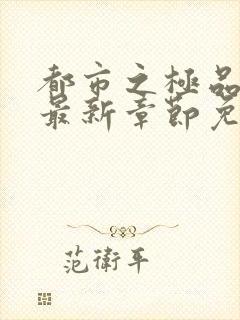 都市之極品
最新章節免
范衛平